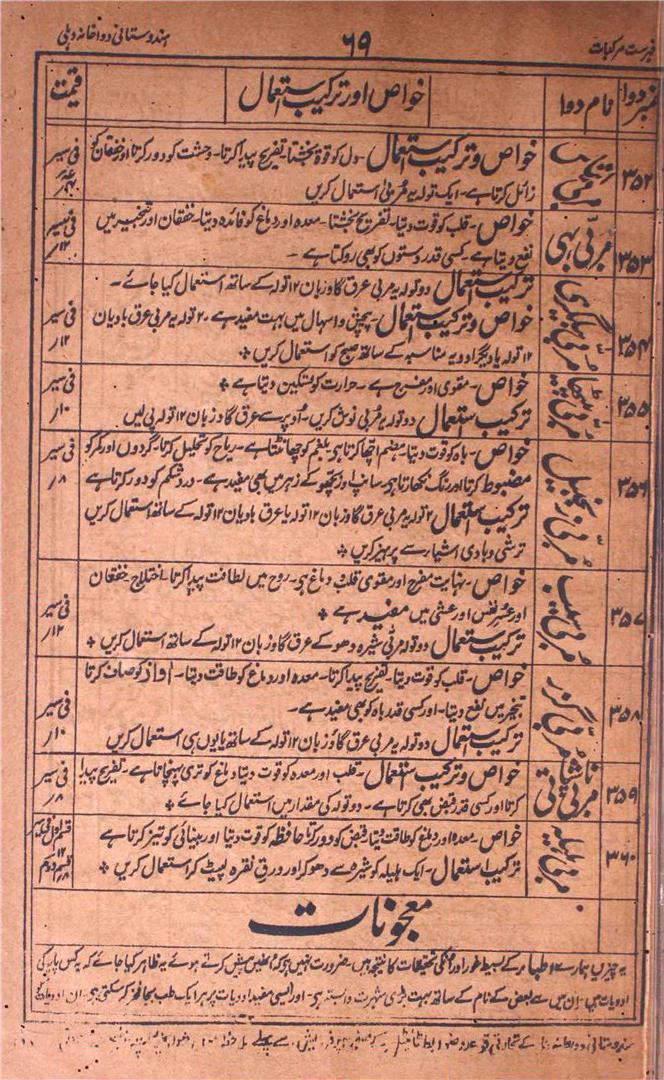 فہرست مرکبات ۶۹ ہندوستانی دواخانہ دہلی
نمبر دوا نام دوا خواص اور ترکیب استعمال قیمت
۳۵۲ خواص و ترکیب استعمال۔ دل کو قوۃ بخشتا۔ تفریح پیدا کرتا۔ وحشت کو دور کرتا اور خفقان کو فی سیر
زائل کرتا ہے۔ ایک تولہ یہ مربیٰ استعمال کریں
۳۵۳ مربّیٰ بہی خواص۔ قلب کو قوت دیتا۔ تفریح بخشتا۔ معدہ اور دماغ کو فائدہ دیتا۔ خفقان اور تبخیر میں فی سیر ۱۲ر
نفع دیتا ہے۔ کسی قدر دستوں کو بھی روکتا ہے۔
ترکیب استعمال دو تولہ یہ مربی عرق گاوزبان ۱۲ تولہ کے ساتھ استعمال کیا جائے۔
۳۵۴ مربّیٰ بیلگری خواص و ترکیب استعمال۔ پیچش و اسہال میں بہت مفید ہے۔ ۲ تولہ یہ مربی عرق بادیان فی سیر ۱۲ر
۱۲ تولہ یا دیگر ادویہ مناسبہ کے ساتھ صبح کو استعمال کریں
۳۵۵ مربّیٰ پیٹھا خواص۔ مقوی اور مفرح ہے۔ حرارت کو تسکین دیتا ہے فی سیر ۱۰ر
ترکیب استعمال دو تولہ یہ مربی نوش کریں۔ اوپر سے عرق گاوزبان ۱۲ تولہ پی لیں
۳۵۶ مربّیٰ زنجبیل خواص۔ باہ کو قوت دیتا۔ ہضم اچھا کرتا ہے۔ بلغم کو چھانٹتا ہے۔ ریاح کو تحلیل کرتا۔ گردوں اور کمر کو فی سیر ۸ر
مضبوط کرتا اور رنگ نکھارتا ہے۔ سانپ اور بچھو کے زہر میں بھی مفید ہے۔ درد شکم کو دور کرتا ہے
ترکیب استعمال ۲ تولہ یہ مربی عرق گاوزبان ۱۲ تولہ یا عرق بادیان ۱۲ تولہ کے ساتھ استعمال کریں
ترشی و بادی اشیاء سے پرہیز کریں
۳۵۷ مربّیٰ سیب خواص۔ نہایت مفرح اور مقوی قلب و دماغ ہے۔ روح میں لطافت پیدا کرتا۔ اختلاج۔ خفقان فی سیر ۱۲ر
اور عسر نفس اور غشی میں مفید ہے
ترکیب استعمال دو تولہ مربیٰ شیرہ دھو کے عرق گاوزبان ۱۲ تولہ کے ساتھ استعمال کریں
۳۵۸ مربّیٰ گزر خواص۔ قلب کو قوت دیتا۔ تفریح پیدا کرتا۔ معدہ اور دماغ کو طاقت دیتا۔ آواز کو صاف کرتا فی سیر ۱۰ر
تبخیر میں نفع دیتا۔ اور کسی قدر باہ کو بھی مفید ہے۔
ترکیب استعمال دو تولہ یہ مربی عرق گاؤزبان ۱۲ تولہ کے ساتھ یا یوں ہی استعمال کریں
۳۵۹ مربّیٰ ناشپاتی خواص و ترکیب استعمال۔ قلب اور معدہ کو قوت دیتا دماغ کو تری پہنچاتا ہے۔ تفریح پیدا فی سیر ۸ر
کرتا اور کسی قدر قبض بھی کرتا ہے۔ دو تولہ کی مقدار میں استعمال کیا جائے
۳۶۰ مربّیٰ ہلیلہ خواص۔ معدہ اور دماغ کو طاقت دیتا قبض کو دور کرتا حافظہ کو قوت دیتا اور بینائی کو تیز کرتا ہے قسم اول فی سیر ۱۲ر
ترکیب استعمال۔ ایک ہلیلہ کو شیرہ سے دھو کر اور ورق نقرہ لپیٹ کر استعمال کریں قسم دوم ۸ر
معجونات
یہ چیزیں ہمارے اطباء کے بسیط غور اور عملی تحقیقات کا نتیجہ ہیں۔ ضرورت نہیں ہے کہ انھیں پیش کرتے ہوئے یہ ظاہر کیا جائے کہ یہ کس پایہ کی
ادویات ہیں۔ ان میں سے بعض کے نام کے ساتھ بہت بڑی شہرت وابستہ ہے۔ اور ایسی مفید ادویات پر ہر ایک طب بجا فخر کر سکتی ہے۔ ان ادویات کو